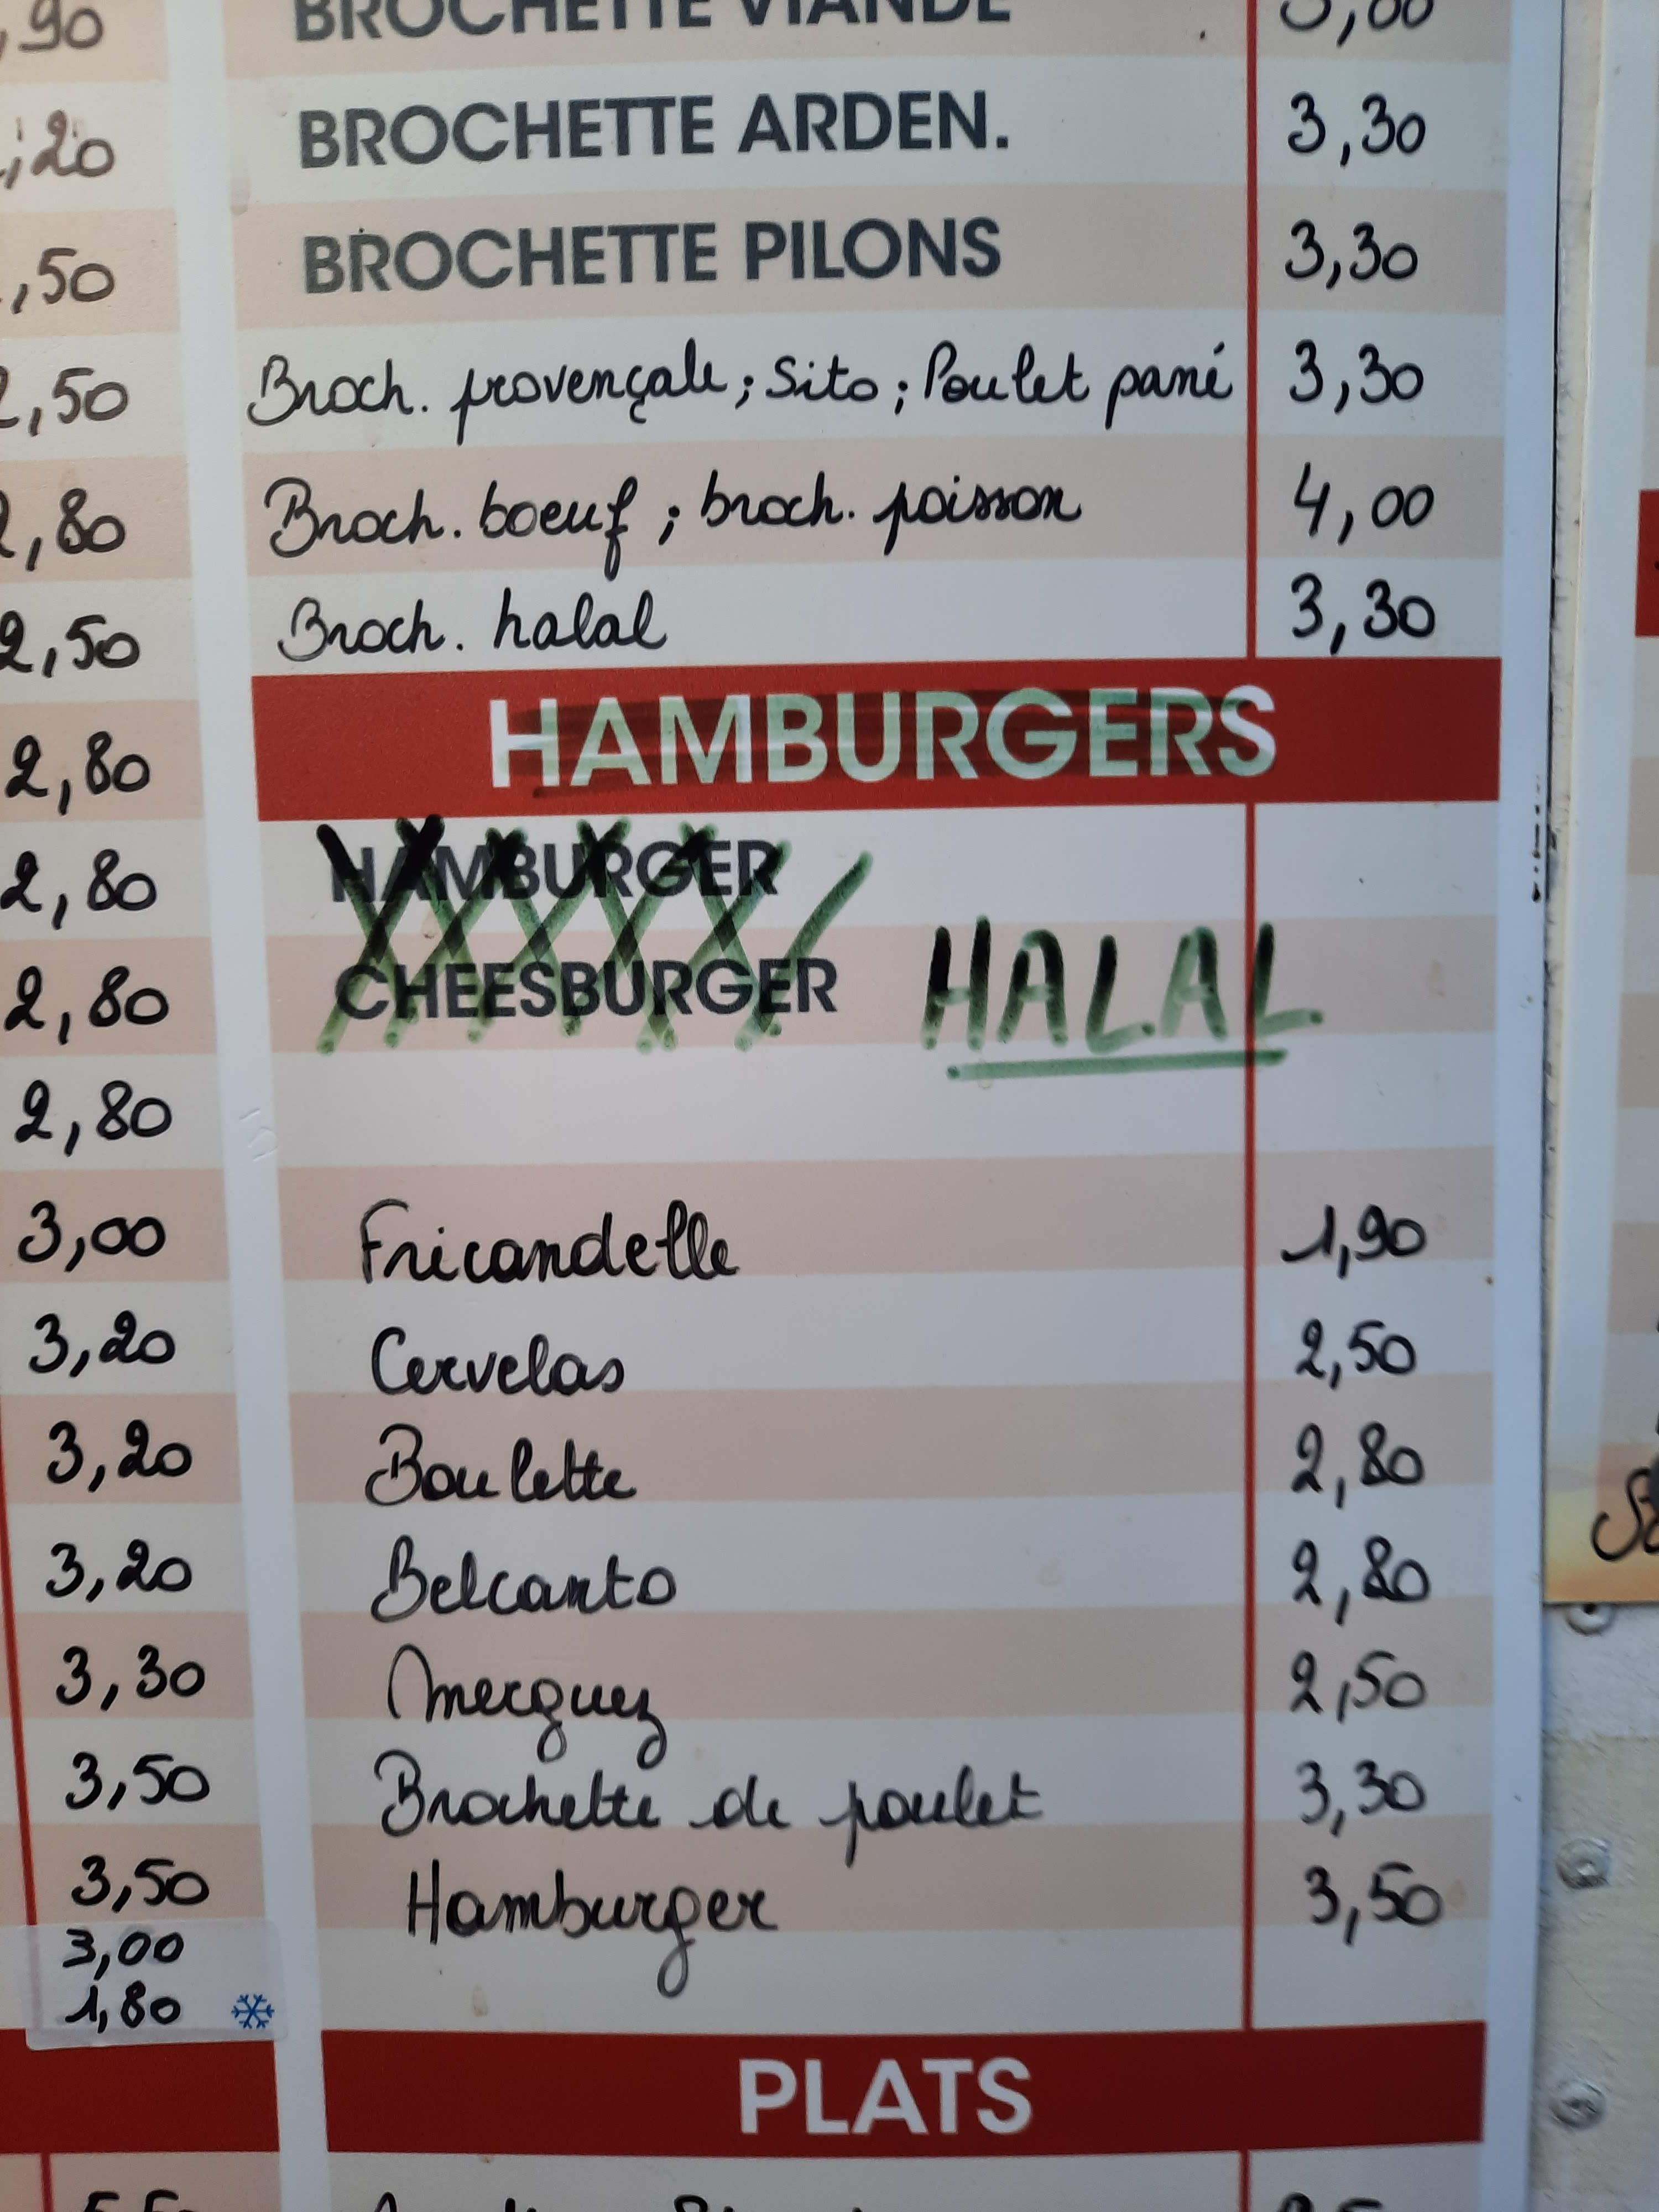 ,90
,20
,50
2,50
2,80
2,50
2,80
2,80
2,80
2,80
3,00
3,20
3,20
3,20
3,30
3,50
3,50
3,00
1,80
BROCHETTE VIANDE
BROCHETTE ARDEN. 3,30
BROCHETTE PILONS 3,30
Broch. provençale; Sito; Poulet pané 3,30
Broch. boeuf ; broch. poisson 4,00
Broch. halal 3,30
HAMBURGERS
HAMBURGER
CHEESBURGER HALAL
Fricandelle 1,90
Cervelas 2,50
Boulette 2,80
Belcanto 2,80
Merguez 2,50
Brochette de poulet 3,30
Hamburger 3,50
PLATS